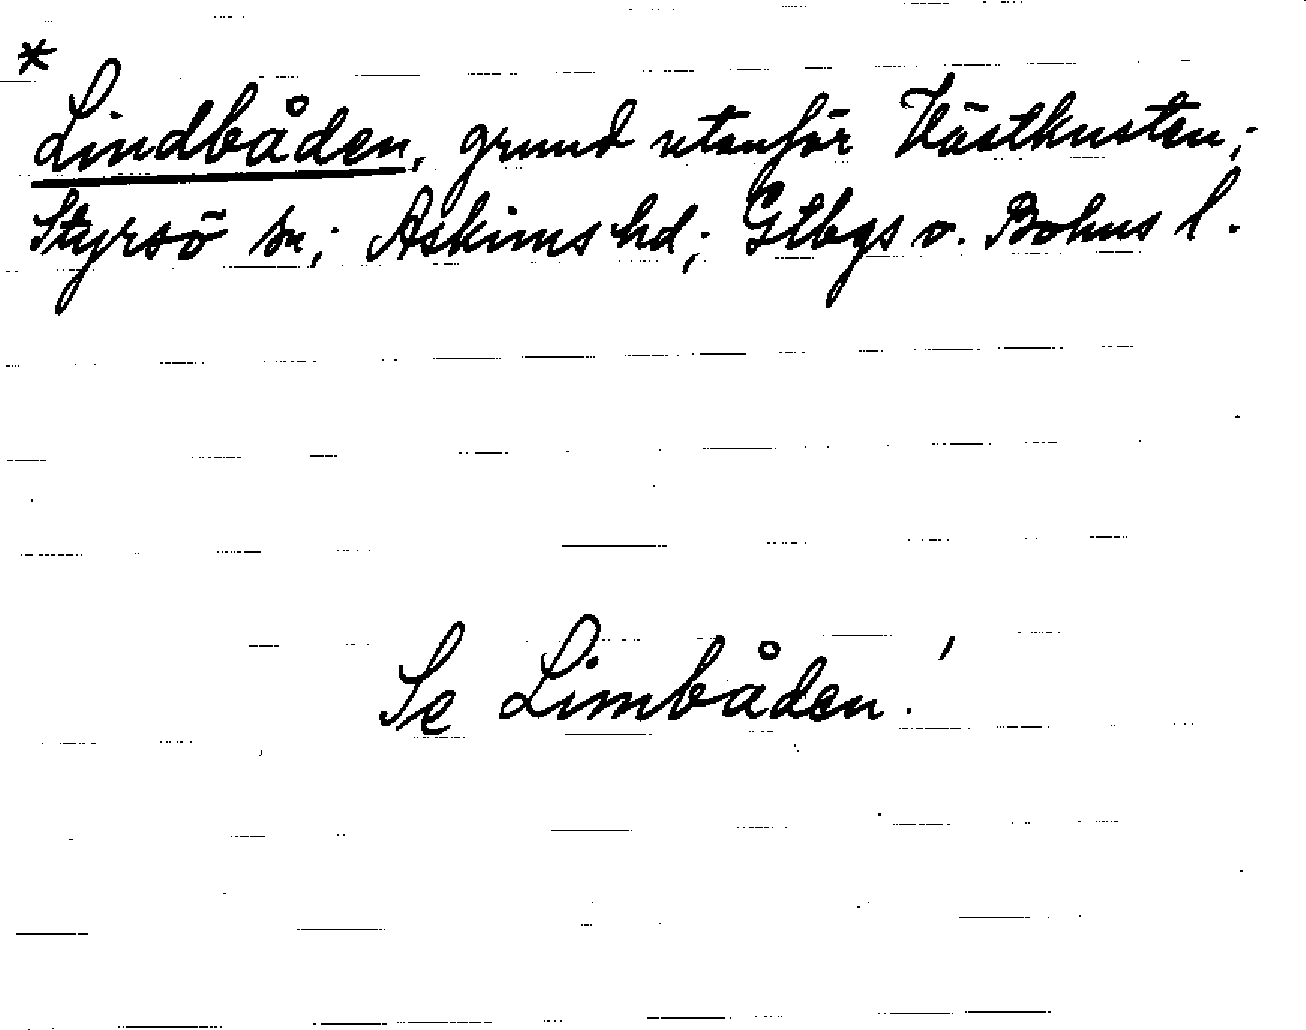 *
Lindbåden, grund utanför Västkusten;
Styrsö sn; Askims hd; Gtbgs o. Bohus l.
Se Limbåden!